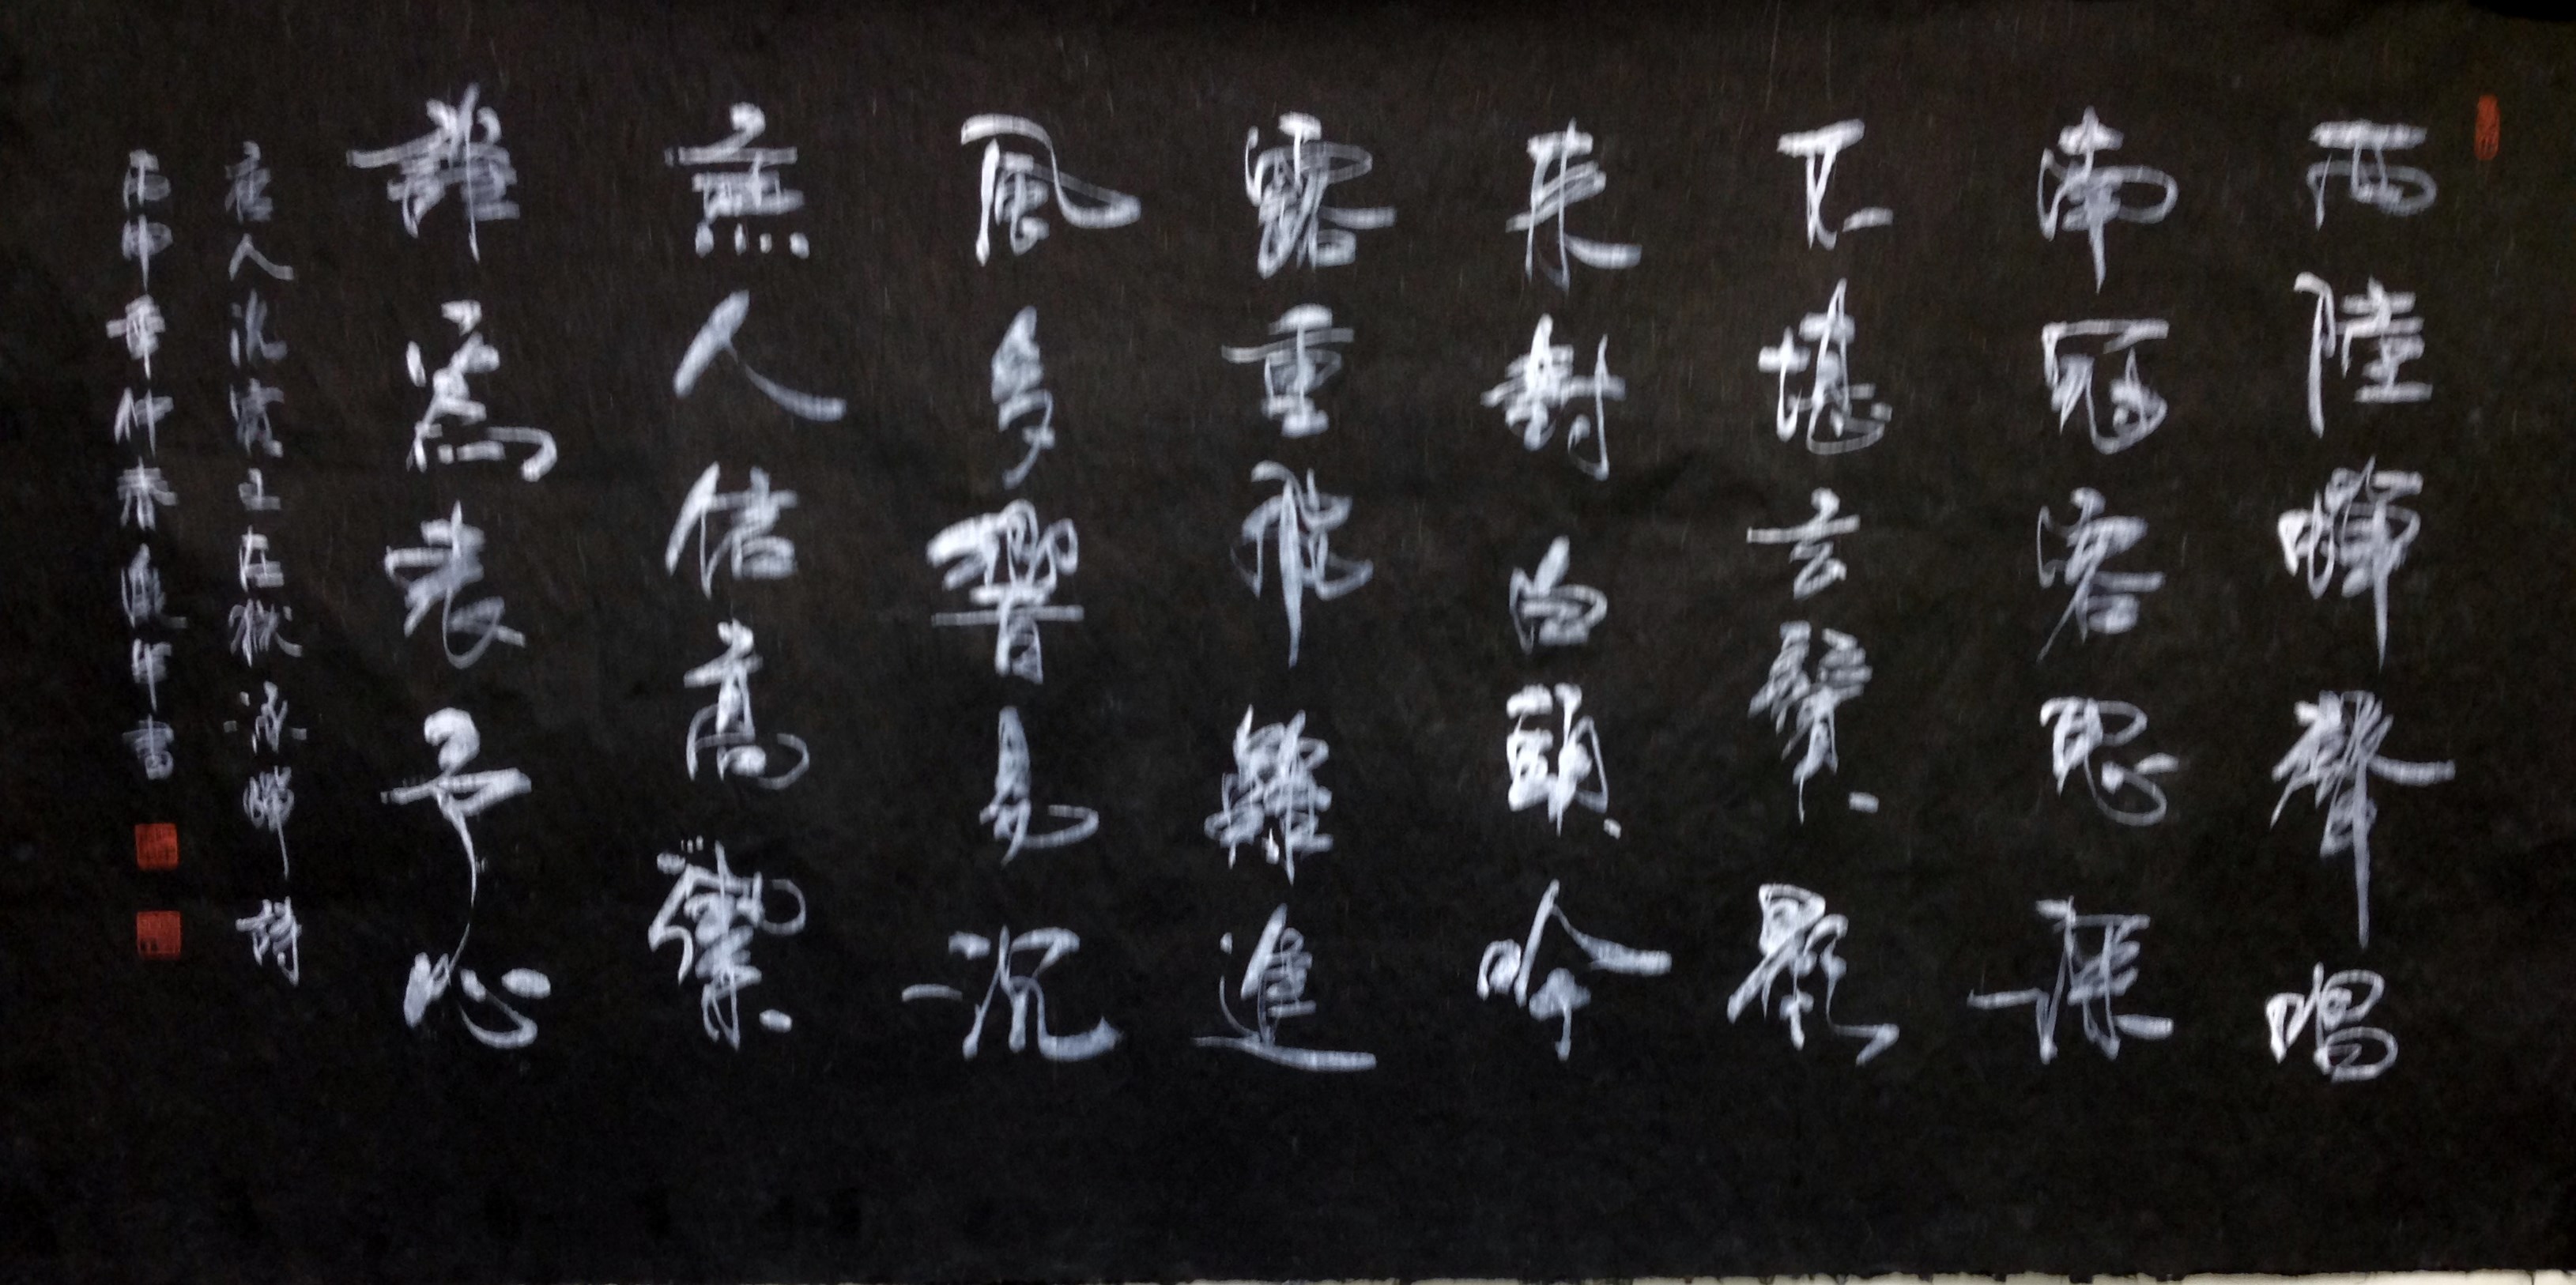 西陸蟬聲唱
南冠客思深
不堪玄鬢影
來對白頭吟
露重飛難進
風多響易沉
無人信高潔
誰為表予心
唐人駱賓王在獄詠蟬詩
丙申年仲春年書